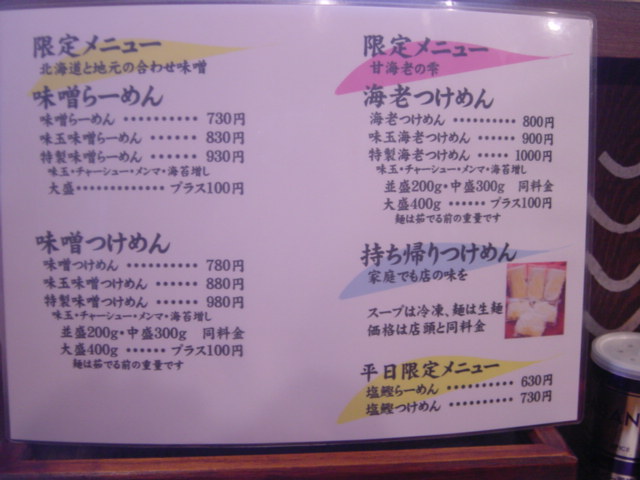 限定メニュー
北海道と地元の合わせ味噌
味噌らーめん
味噌らーめん ・・・・・・・・・・・ 730円
味玉味噌らーめん ・・・・・・ 830円
特製味噌らーめん ・・・・・・ 930円
味玉・チャーシュー・メンマ・海苔増し
大盛・・・・・・・・・・・・・プラス100円
味噌つけめん
味噌つけめん ・・・・・・・・・・ 780円
味玉味噌つけめん ・・・・・・ 880円
特製味噌つけめん ・・・・・・ 980円
味玉・チャーシュー・メンマ・海苔増し
並盛200g・中盛300g 同料金
大盛400g ・・・・・・ プラス100円
麺は茹でる前の重量です
限定メニュー
甘海老の雫
海老つけめん
海老つけめん ・・・・・・・・・・ 800円
味玉海老つけめん ・・・・・・ 900円
特製海老つけめん ・・・・・ 1000円
味玉・チャーシュー・メンマ・海苔増し
並盛200g・中盛300g 同料金
大盛400g ・・・・・ プラス100円
麺は茹でる前の重量です
持ち帰りつけめん
家庭でも店の味を
スープは冷凍、麺は生麺
価格は店頭と同料金
平日限定メニュー
塩鰹らーめん ・・・・・・・・・・ 630円
塩鰹つけめん ・・・・・・・・・・ 730円
AN